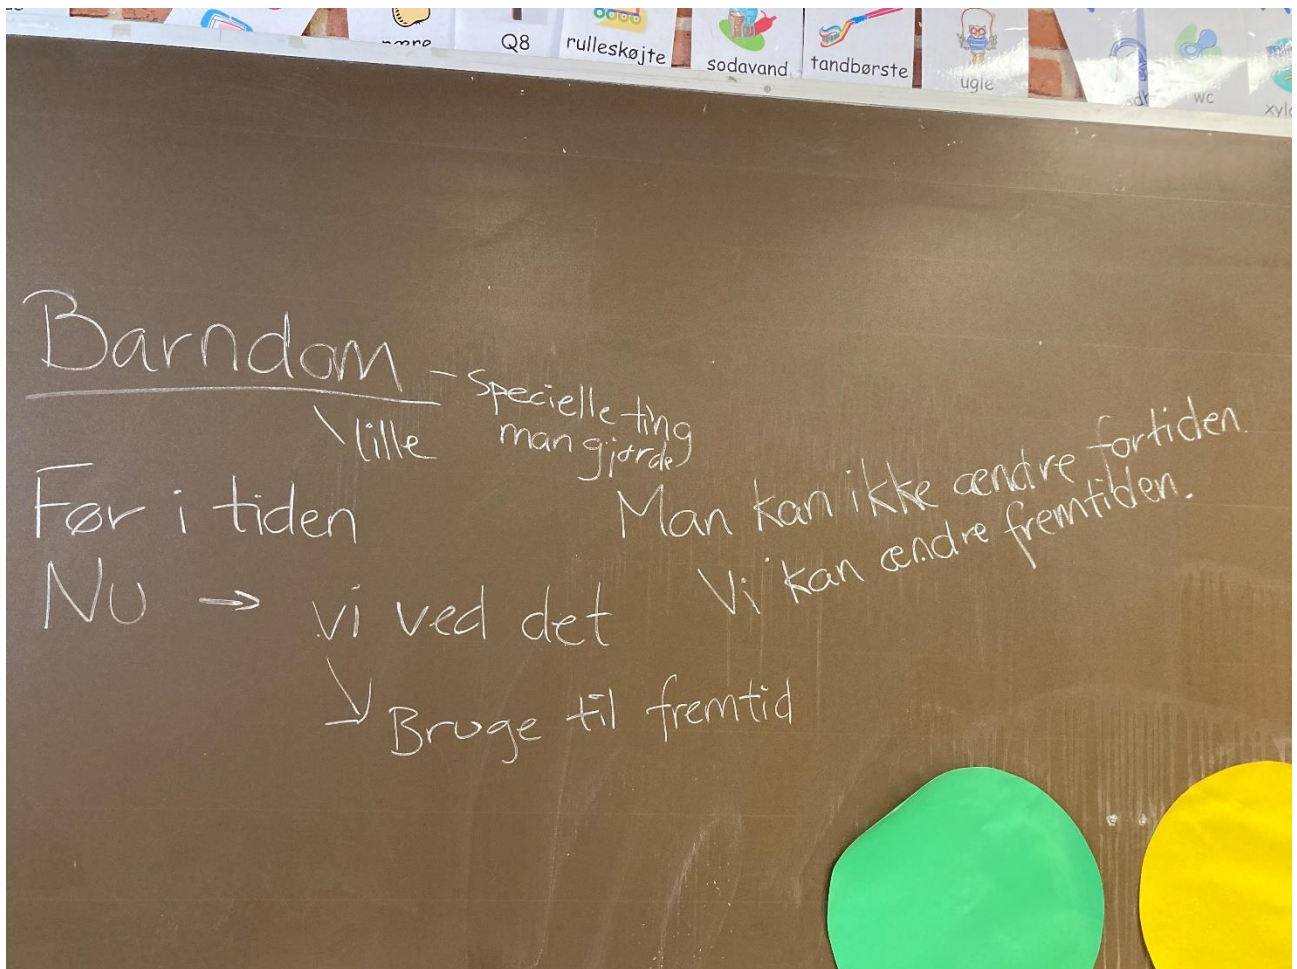 Q8
rulleskøjte
sodavand
tandbørste
ugle
wc
Barndom
- Specielle ting
man gjorde
lille
Før i tiden
Man kan ikke ændre fortiden.
Vi kan ændre fremtiden.
Nu → vi ved det
Bruge til fremtid